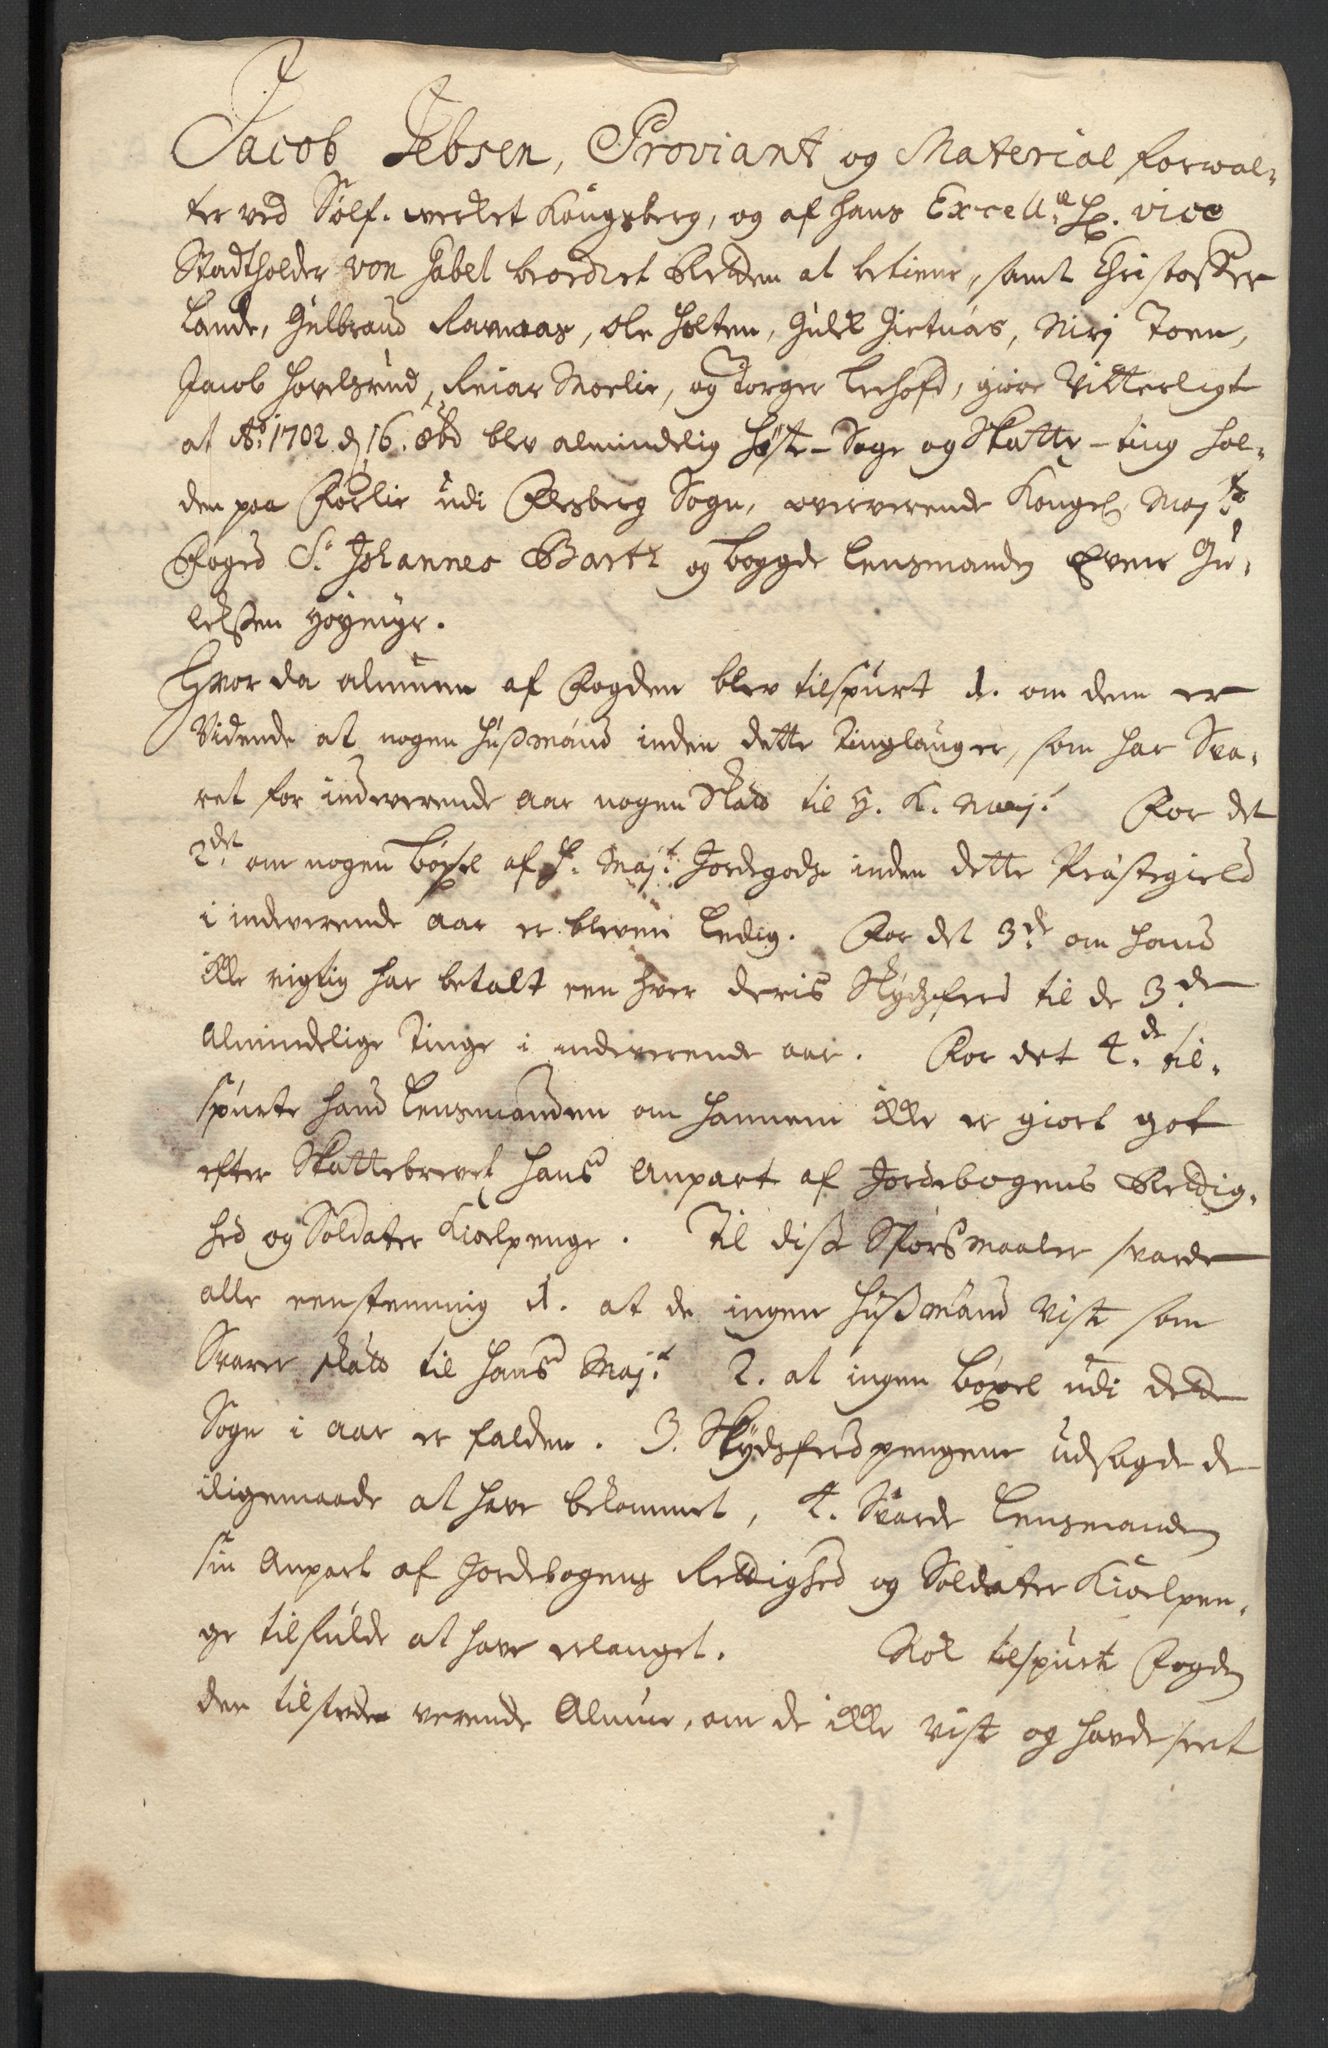 Jacob Jebsen, Proviant og Material forwal-
ter ved Sølf. werket Kongsberg, og af hans Excell:ce H. vice
Stadtholder von Gabel beordret Retten at betiene, samt Christoffer
Lande, Gulbrand Ravnaas, Ole Holten, Gulich Gietuas, Niri Toen,
Jacob Hovelsrud, Reiar Moelie, og Torger Leehofd, giøre Vitterligt
at A:o 1702 d. 16. 8bd blev almindelig Høste-Sage og Skatte-ting hol-
den paa Foslie udi Flesberg Sogn, oververende Kongel. Maj:ts
Foged Sr. Johannes Bartz og bøygde Lensmanden Even Gu-
lichssen Høymyr.
Hvor da almuen af Fogden blev tilspurt 1. om dem er
Vidende at nogen Hussmænd inden dette Tinglauger, som har Sva-
ret for indeverende aar nogen Skatt til H. K. Maj:t For det
2det om nogen bøxel af H. Maj:t Jordegods inden dette Præstegield
i indeverende aar er bleven Ledig. For det 3de om hand
icke rigtig har betalt een hver deris Skydsferd til de 3de
Almindelige Tinge i indeverende aar. For det 4de til-
spurte hand Lensmanden om hannem icke er giort got
efter Skattebrevet hans Anpart af Jordebogens Rettig-
hed og Soldater Kioelpenge. Til disse Spørsmaaler svarde
alle eenstemmig 1. at de ingen Hussmænd Viste som
Svarer skatt til hans Maj:t 2. at ingen bøxel udi dette
Sogn i aar er falden. 3. Skydsferdpengene udsagde de
iligemaade at have bekommet, 4. Svarde Lensmanden
sin Anpart af Jordebogens Rettighed og Soldater Kioelpen-
ge tilfulde at have erlanget. Nok tilspurte Fogden
den tilstede verende Almue, om de icke viste og havde seet